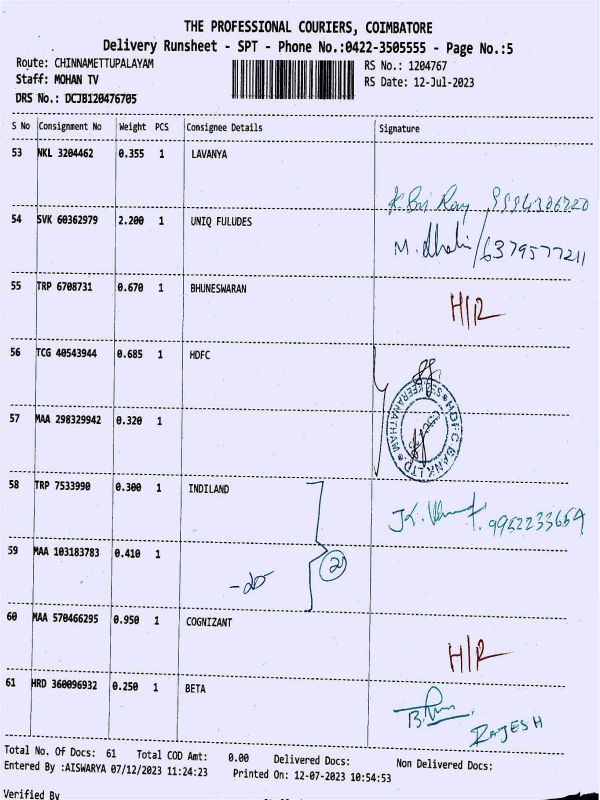 THE PROFESSIONAL COURIERS, COIMBATORE
Delivery Runsheet - SPT - Phone No.:0422-3505555 - Page No.:5
Route: CHINNAMETTUPALAYAM RS No.: 1204767
Staff: MOHAN TV RS Date: 12-Jul-2023
DRS No.: DCJB120476705
S No Consignment No Weight PCS Consignee Details Signature
53 NKL 3204462 0.355 1 LAVANYA
54 SVK 60362979 2.200 1 UNIQ FULUDES
M. /6379577211
55 TRP 6708731 0.670 1 BHUNESWARAN
H/R
56 TCG 40543944 0.685 1 HDFC
HDFC BANK LTD
57 MAA 298329942 0.320 1
58 TRP 7533990 0.300 1 INDILAND
9952233654
59 MAA 103183783 0.410 1
-do- 2
60 MAA 570466295 0.950 1 COGNIZANT
H/R
61 HRD 360096932 0.250 1 BETA
RAJESH
Total No. Of Docs: 61 Total COD Amt: 0.00 Delivered Docs: Non Delivered Docs:
Entered By :AISWARYA 07/12/2023 11:24:23 Printed On: 12-07-2023 10:54:53
Verified By